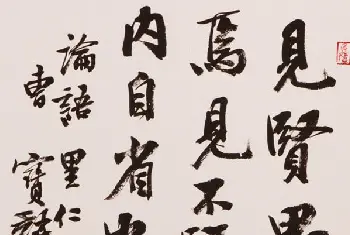 見賢思
焉見不
內自省也
論語里仁
曹寶